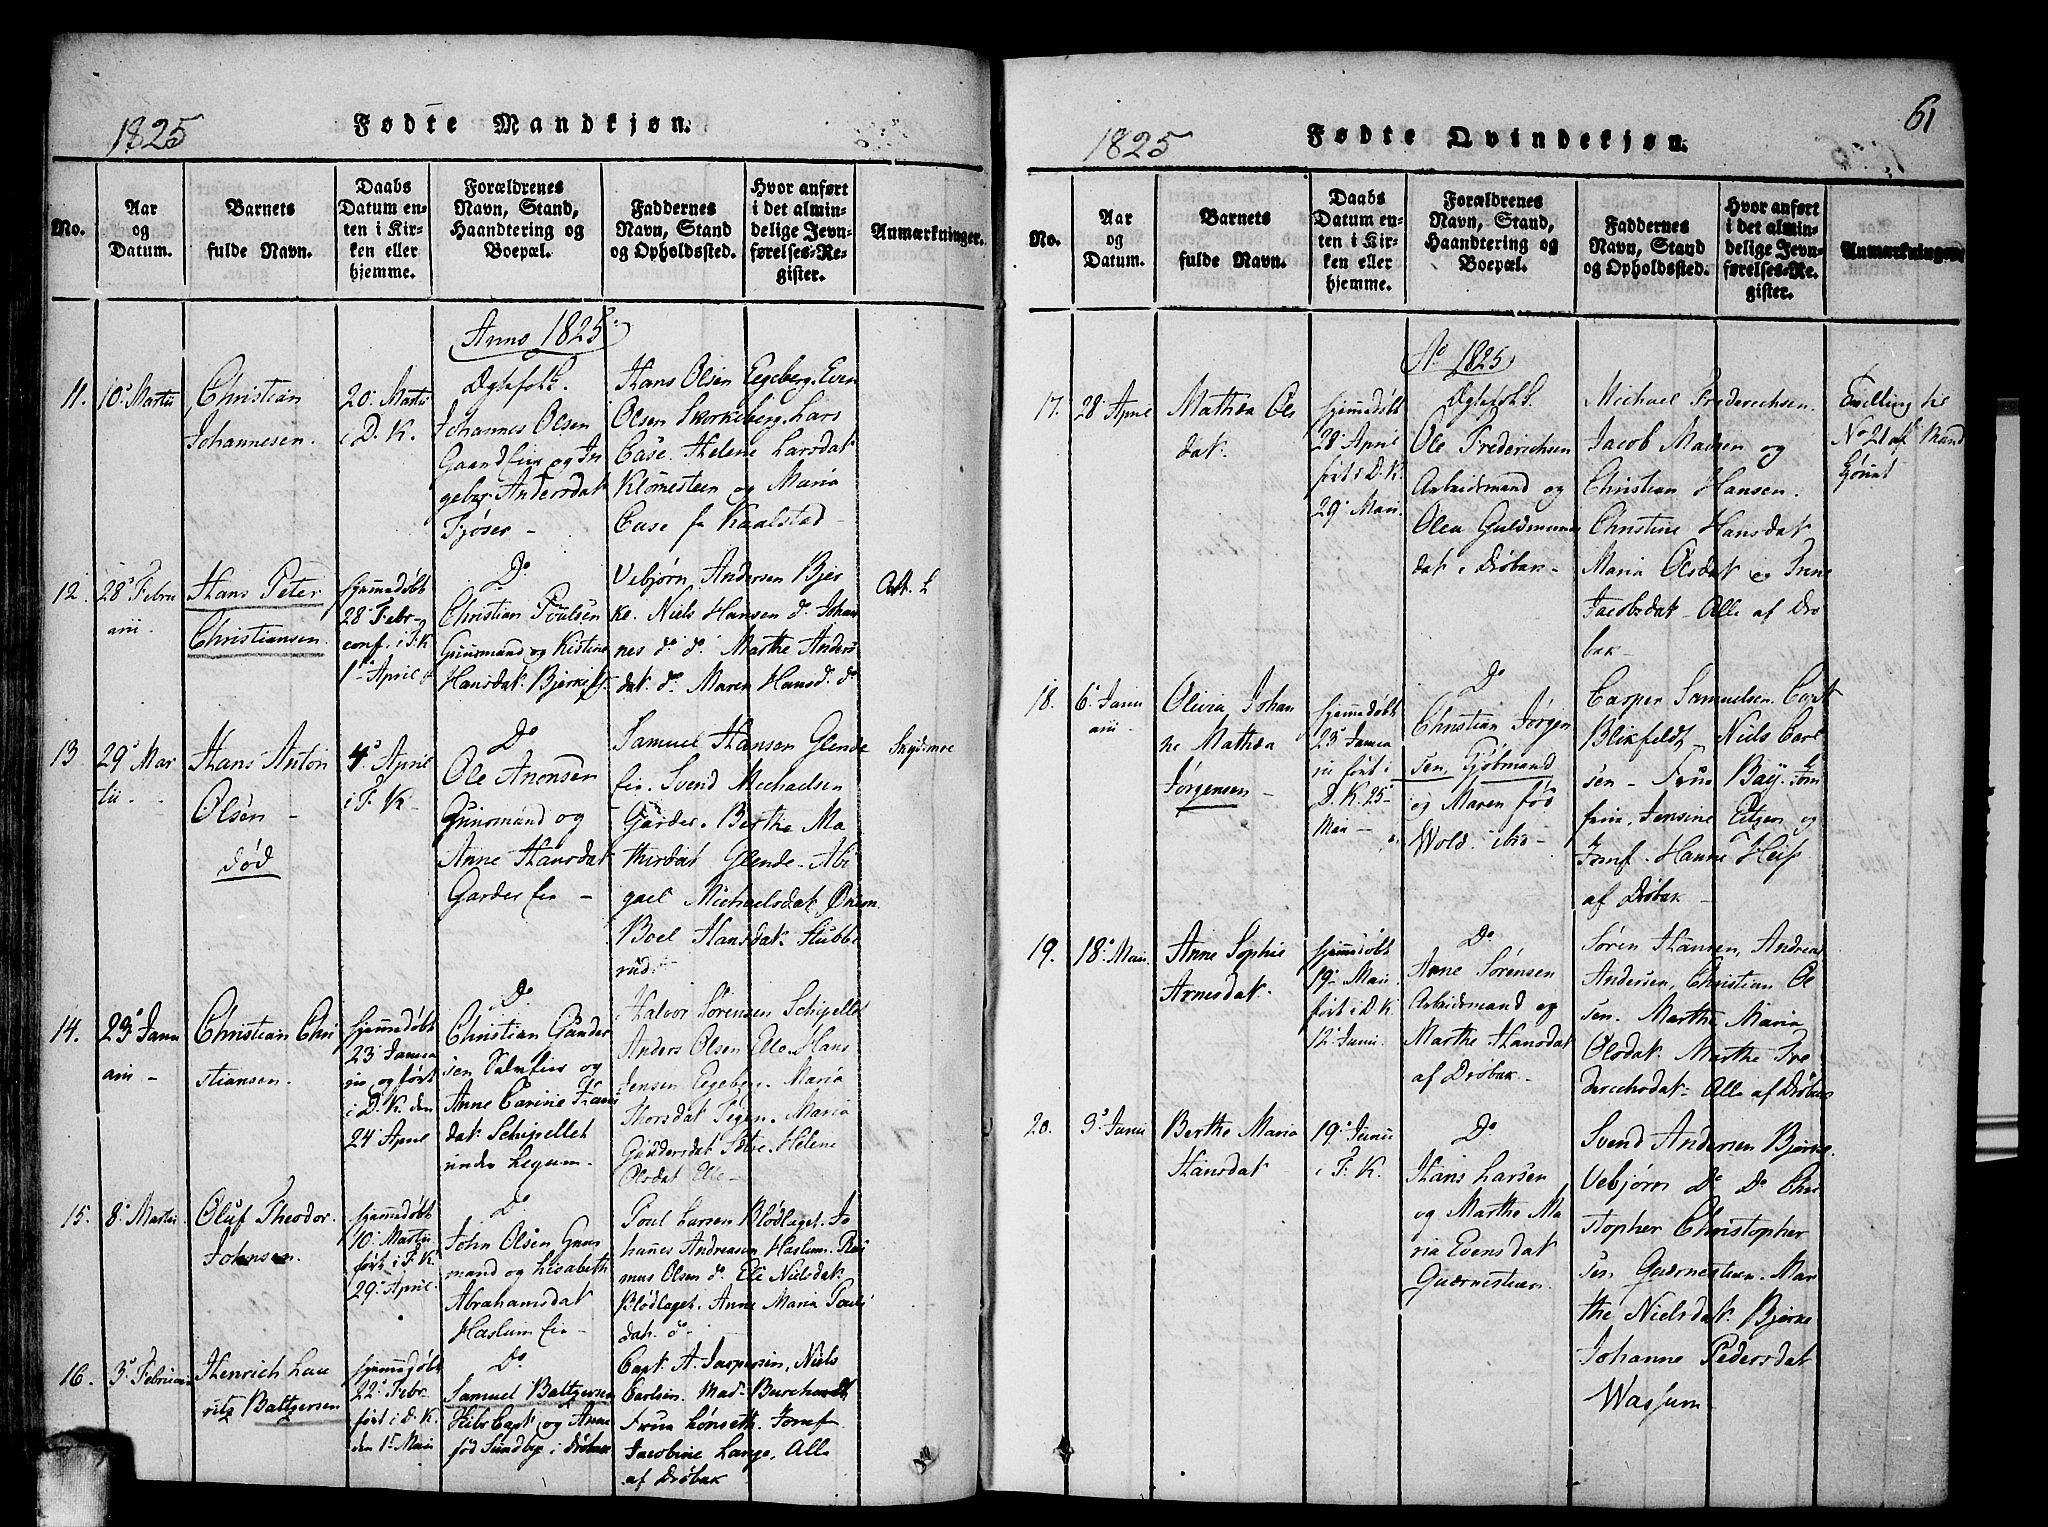 1825
Fødte Mandkjøn.
No.
Aar
og
Datum.
Barnets
fulde Navn.
Daabs
Datum en-
ten i Kir-
ken eller
hjemme.
Forældrenes
Navn, Stand,
Haandtering og
Boepæl.
Faddernes
Navn, Stand
og Opholdssted.
Hvor anført
i det almin-
delige Jevn-
førelses-Re-
gister.
Anmærkninger.
Anno 1825
11.
10de Martii
Christian
Johannesen.
20de Martii
i D. K.
Ægtefolk.
Johannes Olsen
og In
Andersdat
Hans Olsen Egeberg, Even
Olsen Skorkeberg, Lars
Case. Helene Larsdat
Klommesteen og Maria
Case fr. Kaalstad
12.
28de Febru
arii.
Hans Peter
Christiansen.
hjemmedøbt
28de Febr.
conf. i F. K
1ste April
Do
Christian Poulsen
Gaardmand og Kistine
Hansdat. Bjerke
Vebjørn Andersen Bjer
ke. Niels Hansen do Johan
nes do do Marthe Anders
dat. do Maren Hansd. do
13
29de Mar
tii.
Hans Anton
Olsen
død
4de April
i F. K
Do
Ole Aronsen
Huusmand og
Anne Hansdat
Garder eie
Samuel Hansen Glende
eie. Svend Michaelsen
Garder. Berthe Ma
thisdat Glende. Abi
gael Michaelsdat
Boel Hansdat. Stubbe
rud.
14.
23de Janu
arii
Christian Chri
stiansen.
hjemmedøbt
23de Janua
rii og ført
i D. K. den
24de April
Do
Christian Gunder
sen og
Anne Carine
dat.
under
Halvor Sørensen
Anders Olsen Elle. Hans
Jensen Egeberg. Maria
Thorsdat. Maria
Gundersdat. Helene
Olsdat Elle
15.
8de Martii.
Oluf Theodor
Johnsen
hjemmedøbt
10de Martii
ført i F. K.
29de April.
Do
John Olsen Huus
mand og Lisabeth
Abrahamsdat
Haslum eie
Poul Larsen Blødlaget. Jo
hannes Andreasen Haslum. Ras
mus Olsen do Eli Nielsdat
Blødlaget. Anne Maria Pouls
dat. do
16.
3de Februarii
Henrich Lau
ritz Baltzersen
hjemmedøbt
22de Febr.
ført i D. K.
den 1ste Maii
Do
Samuel Baltzersen
Skibs Capt. og Anne
fød Sundbye i Drøbak
Capt. A. Jaspersen, Niels
Carlsen. Mad. Burchardt
Frue Lønseth. Jomf.
Jacobine Lange, Alle
af Drøbak
61
1825
Fødte Qvindekjøn.
No.
Aar
og
Datum.
Barnets
fulde Navn.
Daabs
Datum en-
ten i Kir-
ken eller
hjemme.
Forældrenes
Navn, Stand,
Haandtering og
Boepæl.
Faddernes
Navn, Stand
og Opholdssted.
Hvor anført
i det almin-
delige Jevn-
førelses-Re-
gister.
Anmærkninger
Ao 1825
17.
28de April
Mathea Ols
dat.
hjemmedøbt
28de April
ført i D. K.
29de Maii.
Ægtefolk.
Ole Frederichsen
Arbeidsmand og
Olea Guldmunds
dat i Drøbak
Michael Frederichsen.
Jacob Madsen og
Christian Hansen.
Christine Hansdat
Maria Olsdat og Trine
Jacobsdat. Alle af Drø
bak
Tvilling til
No 21 af Mand
Kjønnet
18.
6de Janu
arii
Olivia Johan
ne Mathea
Jørgensen
hjemmedøbt
23de Janua
rii ført i
D. K. 25de
Maii
Do
Christian Jørgen
sen, Kjøbmand
og Maren fød
Wold. ibid
Casper Samuelsen. Capt
Blikfeldt, Niels Carl
sen. Frue Bay. Jom
fru Jensine Eitzen og
Jomf. Hanne
af Drøbak
19.
18de Maii
Anne Sophie
Arnesdat.
hjemmedøbt
19de Maii
ført i D. K
12te Junii
Do
Arne Sørensen
Arbeidsmand og
Marthe Hansdat
af Drøbak
Søren Hansen, Andreas
Andersen, Christian Ol
sen. Marthe Maria
Olsdat. Marthe Fre
derechsdat. Alle af Drøbak
20.
3de Junii
Berthe Maria
Hansdat
19de Junii
i F. K.
Do
Hans Larsen
og Marthe Ma
ria Evensdat
Qværnesteen
Svend Andersen Bjerke.
Vebjørn Do Do Chri
stopher Christopher
sen Qværnesteen. Mar
the Nielsdat. Bjerke
Johanne Pedersdat
Wassum